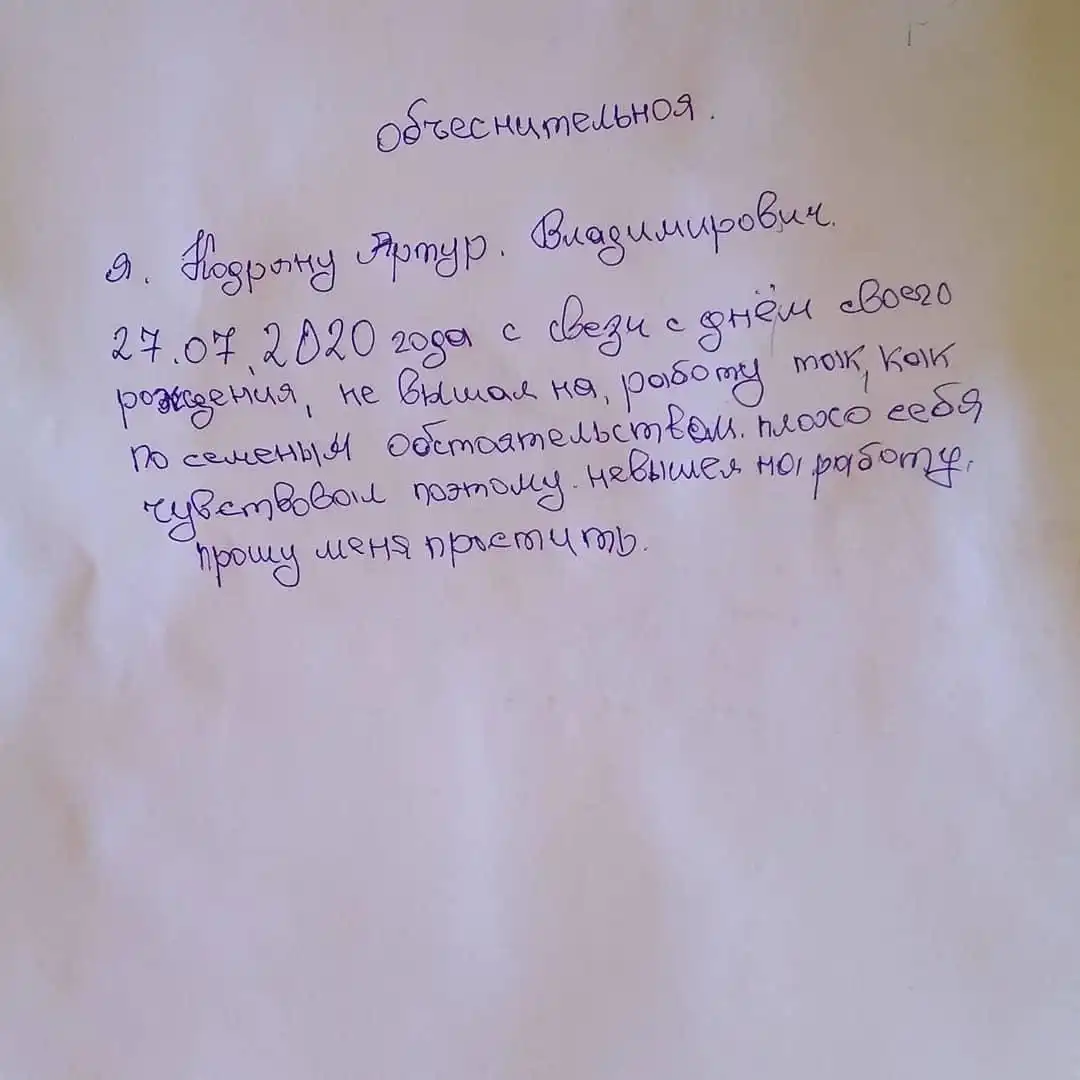 объеснительноя.
я. Кодряну Артур. Владимирович.
27.07.2020 года с свези с днём своего
рождения, не вышал на, работу так, как
по сементым обстоятельствам. плохо себя
чувствовал поэтому. невышел на, работу.
прошу меня простить.